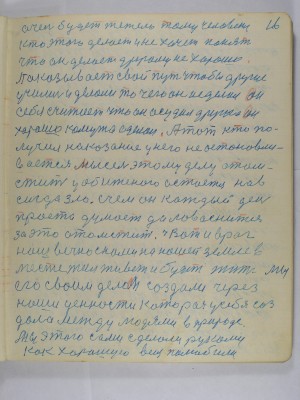 очеп будет жетель тому человеку 16
кто того делает и не хочет понят
что он делает другому не хорошо.
Показывает свой пут чтобы другие
учили и делали то чего он делал он
себя считает что он осудил другого он
хорошо кому то сделал. А тот кто по-
лучил наказание у него не остановли-
вается мысел этому делу отом-
стит у обиженого остаётся нав
сигда зло. с чем он каждый ден
просто думает да ловаснится
за это отомстит. Вот и враг
наш вечно с нами на нашей земле в
месте жил живёт и будет жить мы
его своим делом создали через
нашу ценности которая у себя соз
дала между людями в природе
Мы этого сами сделали рукому
как хорошую вещ полюбили